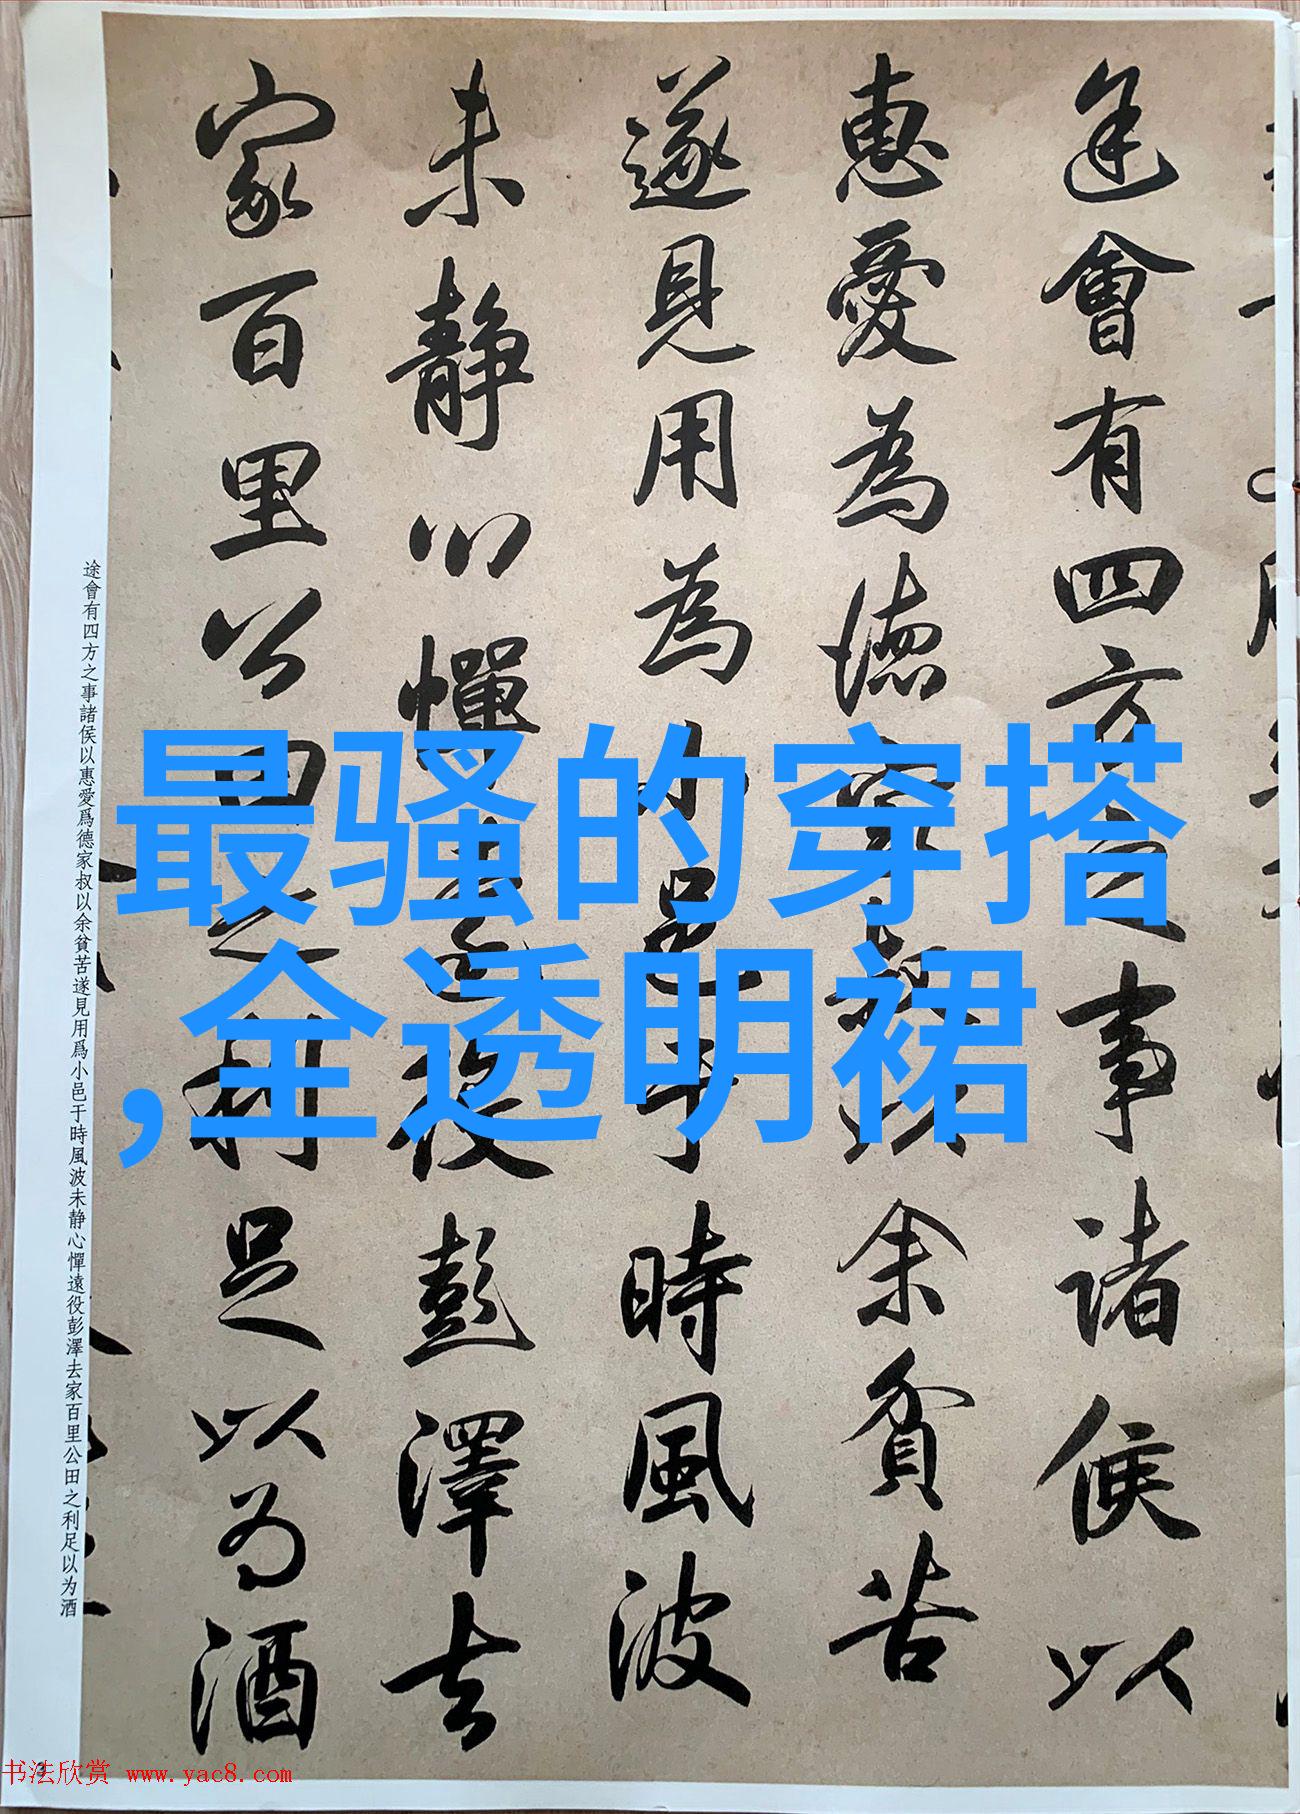 途會有四方之事諸侯以
惠愛為德家叔以余貧苦
遂見用為小邑于時風波
未静心憚遠役彭澤去
家百里公田之利足以為酒
途會有四方之事諸侯以惠愛爲德家叔以余貧苦遂見用爲小邑于時風波未静心憚遠役彭澤去家百里公田之利足以为酒
最骚的穿搭
,全透明裙
书法欣赏 www.yac8.com